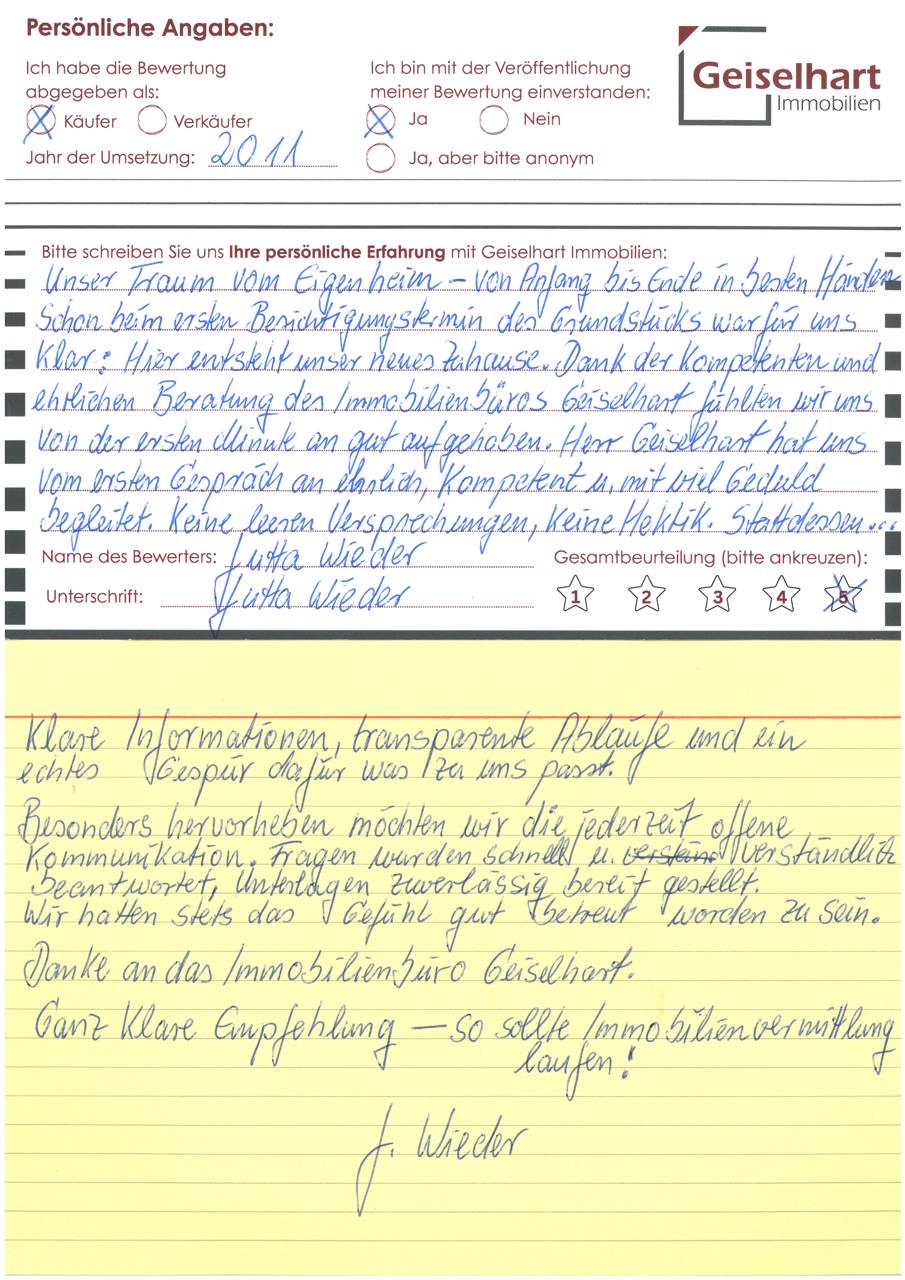 Persönliche Angaben:
Ich habe die Bewertung
abgegeben als:
Käufer Verkäufer
Jahr der Umsetzung: 2011
Ich bin mit der Veröffentlichung
meiner Bewertung einverstanden:
Ja Nein
Ja, aber bitte anonym
Geiselhart
Immobilien
Bitte schreiben Sie uns Ihre persönliche Erfahrung mit Geiselhart Immobilien:
Unser Traum vom Eigenheim – von Anfang bis Ende in besten Händen
Schon beim ersten Besichtigungstermin des Grundstücks war für uns
Klar: Hier entsteht unser neues Zuhause. Dank der Kompetenten und
ehrlichen Beratung des Immobilienbüros Geiselhart fühlten wir uns
von der ersten Minute an gut aufgehoben. Herr Geiselhart hat uns
vom ersten Gespräch an ehrlich, Kompetent u. mit viel Geduld
begleitet. Keine leeren Versprechungen, Keine Hektik. Stattdessen...
Name des Bewerters: Jutta Wieder
Gesamtbeurteilung (bitte ankreuzen):
Unterschrift: Jutta Wieder
1 2 3 4 5
Klare Informationen, transparente Abläufe und ein
echtes Gespür dafür was zu uns passt.
Besonders hervorheben möchten wir die jederzeit offene
Kommunikation. Fragen wurden schnell u. verständlich
beantwortet, Unterlagen zuverlässig bereit gestellt.
Wir hatten stets das Gefühl gut betreut worden zu sein.
Danke an das Immobilienbüro Geiselhart.
Ganz Klare Empfehlung – so sollte Immobilienvermittlung
laufen!
J. Wieder